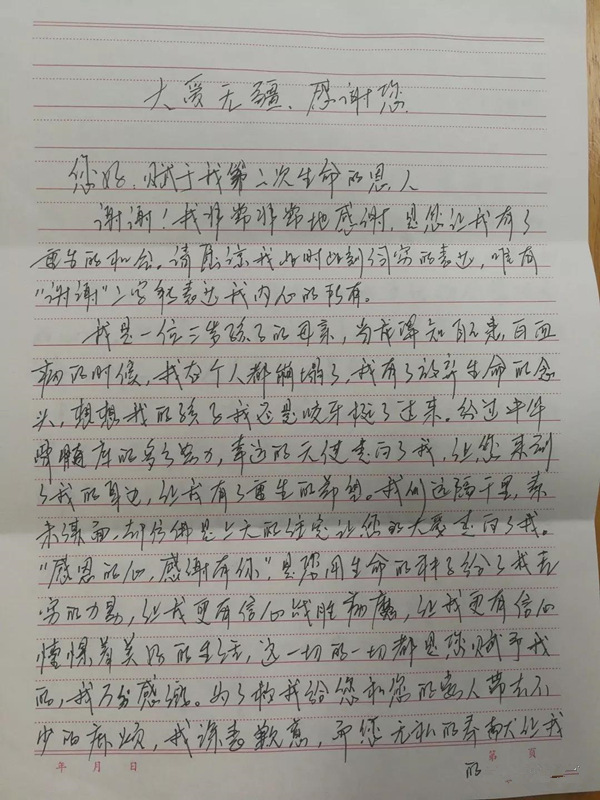 大爱无疆、感谢您
您好，赋于我第二次生命的恩人
谢谢！我非常非常地感谢，是您让我有了
重生的机会。请原谅我此时此刻词穷的表达，唯有
“谢谢”二字能表达我内心的所有。
我是一位三岁孩子的母亲，当我得知自己患白血
病的时候，我整个人都崩塌了，我有了放弃生命的念
头，想想我的孩子我还是咬牙挺了过来。经过中华
骨髓库的多方努力，幸运的天使走向了我，让您来到
了我的身边，让我有了重生的希望。我们远隔千里，素
未谋面，却仿佛是上天的注定让您的大爱走向了我。
“感恩的心，感谢有你”是您用生命的种子给了我无
穷的力量，让我更有信心战胜病魔，让我更有信心
憧憬着美好的生活，这一切的一切都是您赋予我
的，我万分感谢。为了救我给您和您的家人带去不
少的麻烦，我深表歉意，而您无私的奉献让我
的
年 月 日
第 页